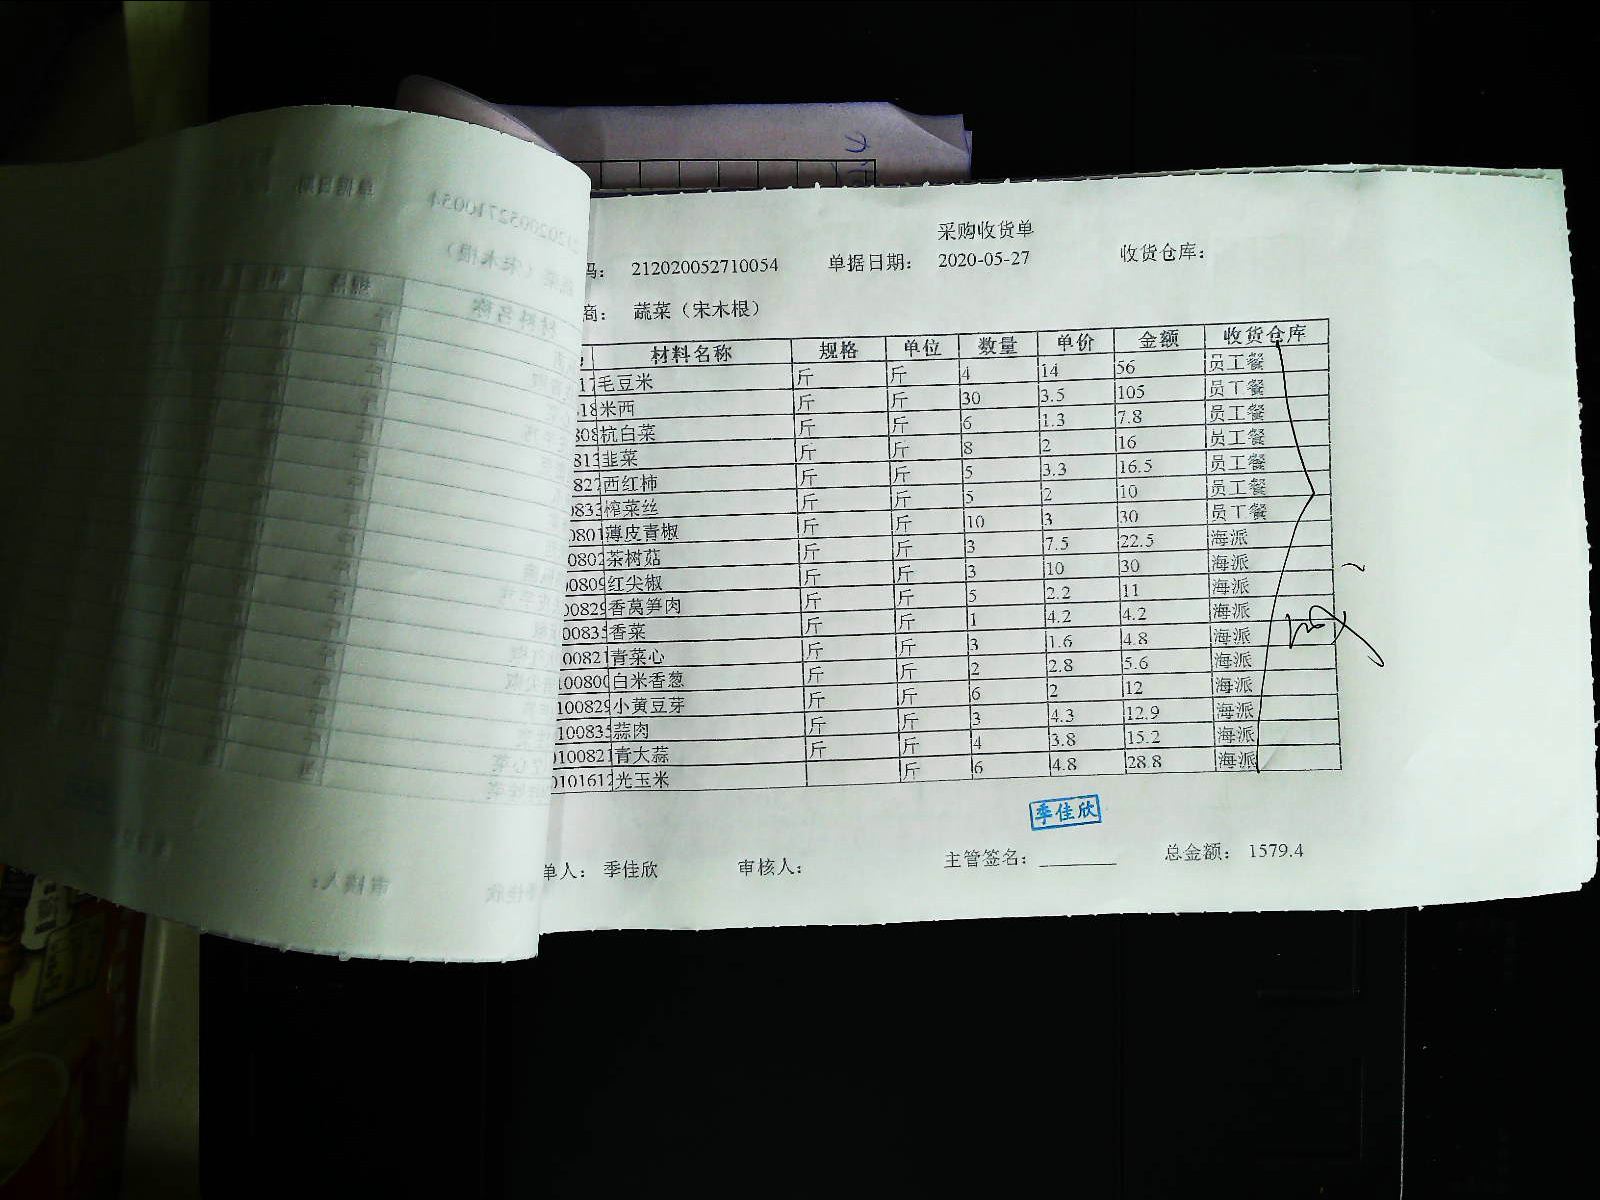 采购收货单
码： 212020052710054 单据日期： 2020-05-27 收货仓库：
商： 蔬菜（宋木根）
材料名称 规格 单位 数量 单价 金额 收货仓库
17 毛豆米 斤 斤 4 14 56 员工餐
18 米西 斤 斤 30 3.5 105 员工餐
808 杭白菜 斤 斤 6 1.3 7.8 员工餐
813 韭菜 斤 斤 8 2 16 员工餐
827 西红柿 斤 斤 5 3.3 16.5 员工餐
0833 榨菜丝 斤 斤 5 2 10 员工餐
0801 薄皮青椒 斤 斤 10 3 30 员工餐
0802 茶树菇 斤 斤 3 7.5 22.5 海派
00809 红尖椒 斤 斤 3 10 30 海派
00829 香莴笋肉 斤 斤 5 2.2 11 海派
00835 香菜 斤 斤 1 4.2 4.2 海派
00821 青菜心 斤 斤 3 1.6 4.8 海派
100800 白米香葱 斤 斤 2 2.8 5.6 海派
100829 小黄豆芽 斤 斤 6 2 12 海派
100835 蒜肉 斤 斤 3 4.3 12.9 海派
0100821 青大蒜 斤 斤 4 3.8 15.2 海派
0101612 光玉米 斤 6 4.8 28.8 海派
季佳欣
单人： 季佳欣 审核人： 主管签名：________ 总金额： 1579.4